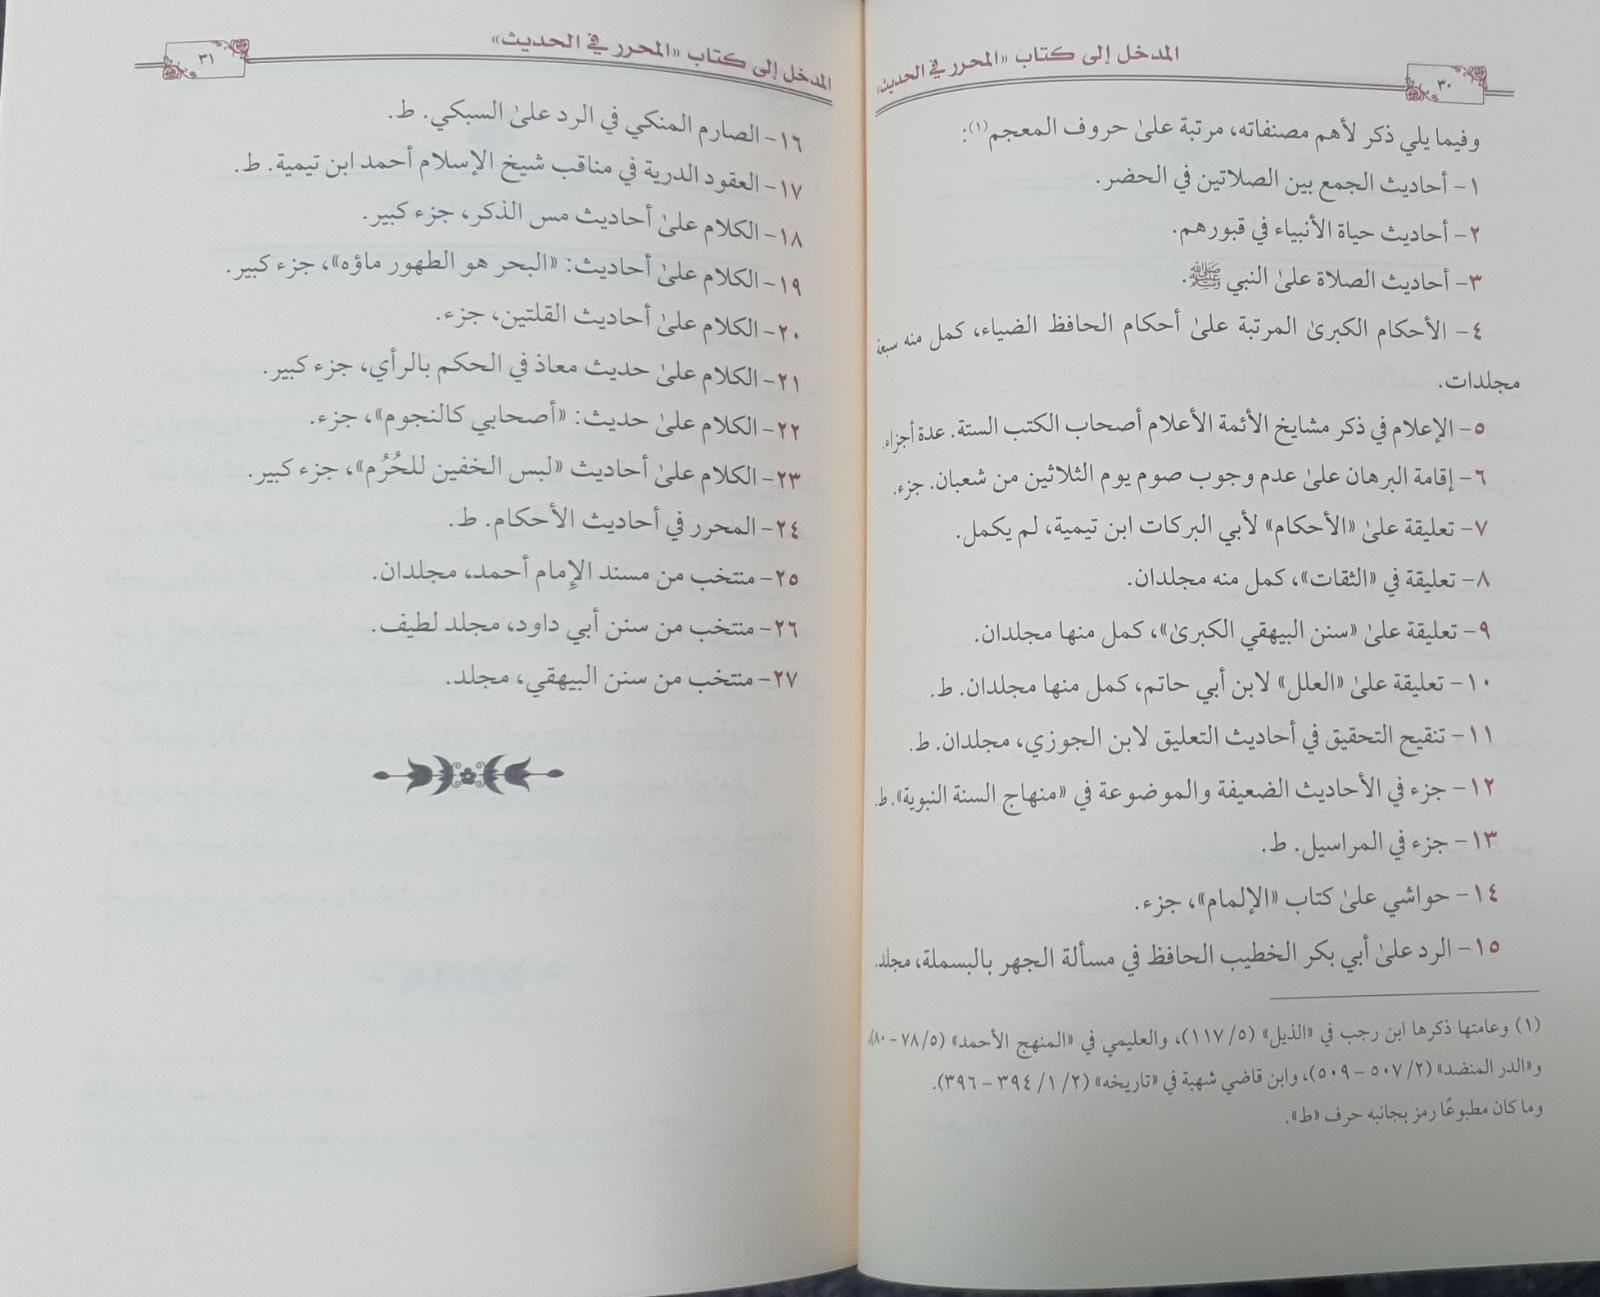 ٣٠
المدخل إلى كتاب «المحرر في الحديث»
وفيما يلي ذكر لأهم مصنفاته، مرتبة علىٰ حروف المعجم(١):
١- أحاديث الجمع بين الصلاتين في الحضر.
٢- أحاديث حياة الأنبياء في قبورهم.
٣- أحاديث الصلاة علىٰ النبي ﷺ.
٤- الأحكام الكبرىٰ المرتبة علىٰ أحكام الحافظ الضياء، كمل منه سبعة
مجلدات.
٥- الإعلام في ذكر مشايخ الأئمة الأعلام أصحاب الكتب الستة. عدة أجزاء.
٦- إقامة البرهان علىٰ عدم وجوب صوم يوم الثلاثين من شعبان. جزء.
٧- تعليقة علىٰ «الأحكام» لأبي البركات ابن تيمية، لم يكمل.
٨- تعليقة في «الثقات»، كمل منه مجلدان.
٩- تعليقة علىٰ «سنن البيهقي الكبرىٰ»، كمل منها مجلدان.
١٠- تعليقة علىٰ «العلل» لابن أبي حاتم، كمل منها مجلدان. ط.
١١- تنقيح التحقيق في أحاديث التعليق لابن الجوزي، مجلدان. ط.
١٢- جزء في الأحاديث الضعيفة والموضوعة في «منهاج السنة النبوية». ط.
١٣- جزء في المراسيل. ط.
١٤- حواشي علىٰ كتاب «الإلمام»، جزء.
١٥- الرد علىٰ أبي بكر الخطيب الحافظ في مسألة الجهر بالبسملة، مجلد.
(١) وعامتها ذكرها ابن رجب في «الذيل» (٥/ ١١٧)، والعليمي في «المنهج الأحمد» (٥/ ٧٨ - ٨٠)،
و«الدر المنضد» (٢/ ٥٠٧ - ٥٠٩)، وابن قاضي شهبة في «تاريخه» (٢/ ١/ ٣٩٤ - ٣٩٦).
وما كان مطبوعًا رمز بجانبه حرف «ط».
المدخل إلى كتاب «المحرر في الحديث»
٣١
١٦- الصارم المنكي في الرد علىٰ السبكي. ط.
١٧- العقود الدرية في مناقب شيخ الإسلام أحمد ابن تيمية. ط.
١٨- الكلام علىٰ أحاديث مس الذكر، جزء كبير.
١٩- الكلام علىٰ أحاديث: «البحر هو الطهور ماؤه»، جزء كبير.
٢٠- الكلام علىٰ أحاديث القلتين، جزء.
٢١- الكلام علىٰ حديث معاذ في الحكم بالرأي، جزء كبير.
٢٢- الكلام علىٰ حديث: «أصحابي كالنجوم»، جزء.
٢٣- الكلام علىٰ أحاديث «لبس الخفين للحُرُم»، جزء كبير.
٢٤- المحرر في أحاديث الأحكام. ط.
٢٥- منتخب من مسند الإمام أحمد، مجلدان.
٢٦- منتخب من سنن أبي داود، مجلد لطيف.
٢٧- منتخب من سنن البيهقي، مجلد.